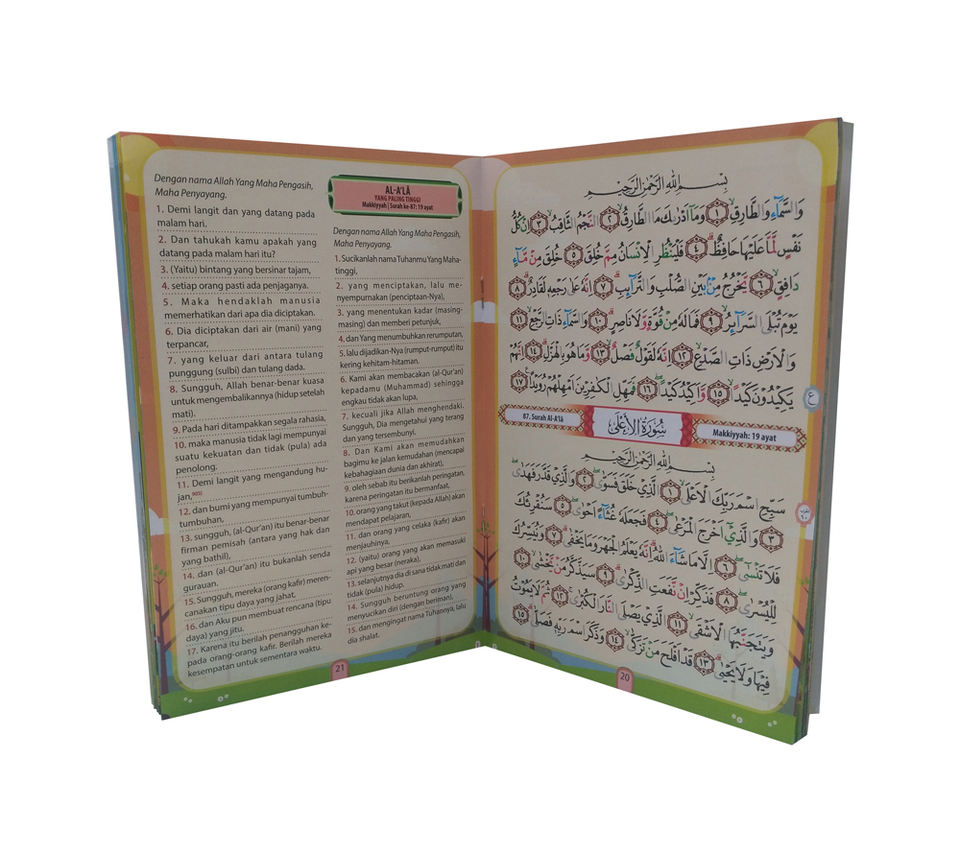 بِسْمِ اللهِ الرَّحْمٰنِ الرَّحِيْمِ
وَالسَّمَآءِ وَالطَّارِقِۙ ١ وَمَآ اَدْرٰىكَ مَا الطَّارِقُۙ ٢ النَّجْمُ الثَّاقِبُۙ ٣ اِنْ كُلُّ
نَفْسٍ لَّمَّا عَلَيْهَا حَافِظٌۗ ٤ فَلْيَنْظُرِ الْاِنْسَانُ مِمَّ خُلِقَ ٥ خُلِقَ مِنْ مَّآءٍ
دَافِقٍۙ ٦ يَّخْرُجُ مِنْۢ بَيْنِ الصُّلْبِ وَالتَّرَآىِٕبِۗ ٧ اِنَّهٗ عَلٰى رَجْعِهٖ لَقَادِرٌۗ ٨
يَوْمَ تُبْلَى السَّرَآىِٕرُۙ ٩ فَمَا لَهٗ مِنْ قُوَّةٍ وَّلَا نَاصِرٍۗ ١٠ وَالسَّمَآءِ ذَاتِ الرَّجْعِۙ ١١
وَالْاَرْضِ ذَاتِ الصَّدْعِۙ ١٢ اِنَّهٗ لَقَوْلٌ فَصْلٌۙ ١٣ وَّمَا هُوَ بِالْهَزْلِۗ ١٤ اِنَّهُمْ
يَكِيْدُوْنَ كَيْدًاۙ ١٥ وَّاَكِيْدُ كَيْدًاۖ ١٦ فَمَهِّلِ الْكٰفِرِيْنَ اَمْهِلْهُمْ رُوَيْدًا ١٧
ع
87. Surah Al-A'lā
سُوْرَةُ الْاَعْلٰى
Makkiyyah: 19 ayat
بِسْمِ اللهِ الرَّحْمٰنِ الرَّحِيْمِ
سَبِّحِ اسْمَ رَبِّكَ الْاَعْلَىۙ ١ الَّذِيْ خَلَقَ فَسَوّٰىۖ ٢ وَالَّذِيْ قَدَّرَ فَهَدٰىۖ
٣ وَالَّذِيْٓ اَخْرَجَ الْمَرْعٰىۖ ٤ فَجَعَلَهٗ غُثَآءً اَحْوٰىۖ ٥ سَنُقْرِئُكَ
فَلَا تَنْسٰىٓۖ ٦ اِلَّا مَا شَآءَ اللّٰهُ اِنَّهٗ يَعْلَمُ الْجَهْرَ وَمَا يَخْفٰىۗ ٧ وَنُيَسِّرُكَ
لِلْيُسْرٰىۖ ٨ فَذَكِّرْ اِنْ نَّفَعَتِ الذِّكْرٰىۗ ٩ سَيَذَّكَّرُ مَنْ يَّخْشٰىۙ ١٠
وَيَتَجَنَّبُهَا الْاَشْقَىۙ ١١ الَّذِيْ يَصْلَى النَّارَ الْكُبْرٰىۚ ١٢ ثُمَّ لَا يَمُوْتُ
فِيْهَا وَلَا يَحْيٰىۗ ١٣ قَدْ اَفْلَحَ مَنْ تَزَكّٰىۙ ١٤ وَذَكَرَ اسْمَ رَبِّهٖ فَصَلّٰىۗ ١٥
20
Dengan nama Allah Yang Maha Pengasih,
Maha Penyayang.
1. Demi langit dan yang datang pada
malam hari.
2. Dan tahukah kamu apakah yang
datang pada malam hari itu?
3. (Yaitu) bintang yang bersinar tajam,
4. setiap orang pasti ada penjaganya.
5. Maka hendaklah manusia
memerhatikan dari apa dia diciptakan.
6. Dia diciptakan dari air (mani) yang
terpancar,
7. yang keluar dari antara tulang
punggung (sulbi) dan tulang dada.
8. Sungguh, Allah benar-benar kuasa
untuk mengembalikannya (hidup setelah
mati).
9. Pada hari ditampakkan segala rahasia,
10. maka manusia tidak lagi mempunyai
suatu kekuatan dan tidak (pula) ada
penolong.
11. Demi langit yang mengandung hu-
jan,
12. dan bumi yang mempunyai tumbuh-
tumbuhan,
13. sungguh, (al-Qur'an) itu benar-benar
firman pemisah (antara yang hak dan
yang bathil),
14. dan (al-Qur'an) itu bukanlah senda
gurauan.
15. Sungguh, mereka (orang kafir) meren-
canakan tipu daya yang jahat.
16. dan Aku pun membuat rencana (tipu
daya) yang jitu.
17. Karena itu berilah penangguhan ke-
pada orang-orang kafir. Berilah mereka
kesempatan untuk sementara waktu.
AL-A'LĀ
YANG PALING TINGGI
Makkiyyah | Surah ke-87: 19 ayat
Dengan nama Allah Yang Maha Pengasih,
Maha Penyayang.
1. Sucikanlah nama Tuhanmu Yang Maha-
tinggi,
2. yang menciptakan, lalu me-
nyempurnakan (penciptaan-Nya),
3. yang menentukan kadar (masing-
masing) dan memberi petunjuk,
4. dan Yang menumbuhkan rerumputan,
5. lalu dijadikan-Nya (rumput-rumput) itu
kering kehitam-hitaman.
6. Kami akan membacakan (al-Qur'an)
kepadamu (Muhammad) sehingga
engkau tidak akan lupa,
7. kecuali jika Allah menghendaki.
Sungguh, Dia mengetahui yang terang
dan yang tersembunyi.
8. Dan Kami akan memudahkan
bagimu ke jalan kemudahan (mencapai
kebahagiaan dunia dan akhirat),
9. oleh sebab itu berikanlah peringatan,
karena peringatan itu bermanfaat,
10. orang yang takut (kepada Allah) akan
mendapat pelajaran,
11. dan orang yang celaka (kafir) akan
menjauhinya,
12. (yaitu) orang yang akan memasuki
api yang besar (neraka),
13. selanjutnya dia di sana tidak mati dan
tidak (pula) hidup.
14. Sungguh beruntung orang yang
menyucikan diri (dengan beriman),
15. dan mengingat nama Tuhannya, lalu
dia shalat.
21